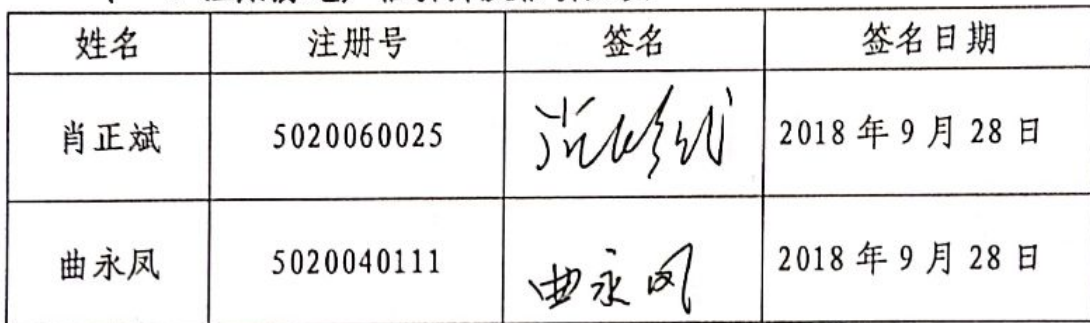 姓名 注册号 签名 签名日期
肖正斌 5020060025 肖正斌 2018 年 9 月 28 日
曲永凤 5020040111 曲永凤 2018 年 9 月 28 日